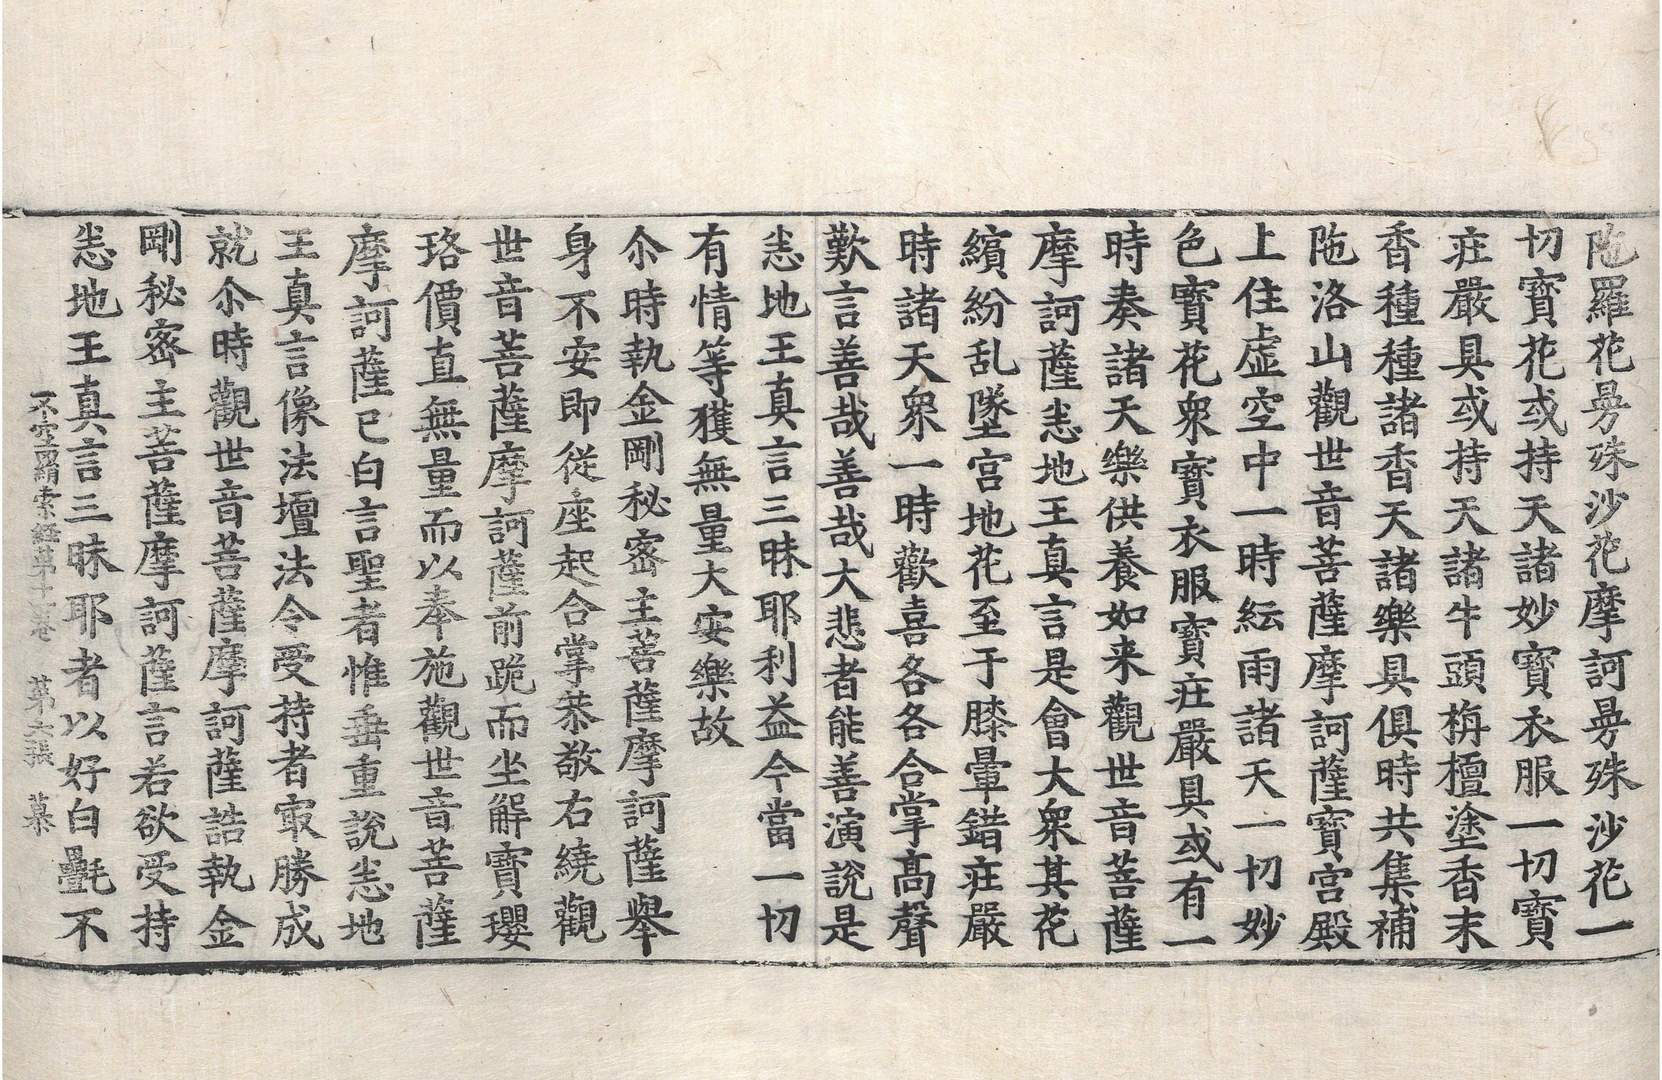 陁羅花曼殊沙花摩訶曼殊沙花一
切寶花或持天諸妙寶衣服一切寶
莊嚴具或持天諸牛頭栴檀塗香末
香種種諸香天諸樂具俱時共集補
陁洛山觀世音菩薩摩訶薩寶宮殿
上住虛空中一時紜雨諸天一切妙
色寶花衆寶衣服寶莊嚴具或有一
時奏諸天樂供養如来觀世音菩薩
摩訶薩悉地王真言是會大衆其花
繽紛乱墜宮地花至于膝暈錯莊嚴
時諸天衆一時歡喜各各合掌髙聲
歎言善哉善哉大悲者能善演說是
悉地王真言三昧耶利益今當一切
有情等獲無量大安樂故
尒時執金剛秘密主菩薩摩訶薩舉
身不安即從座起合掌恭敬右繞觀
世音菩薩摩訶薩前跪而坐解寶瓔
珞價直無量而以奉施觀世音菩薩
摩訶薩已白言聖者惟垂重說悉地
王真言像法壇法令受持者㝡勝成
就尒時觀世音菩薩摩訶薩誥執金
剛秘密主菩薩摩訶薩言若欲受持
悉地王真言三昧耶者以好白㲲不
不空羂索経苐十卷 苐六張 慕